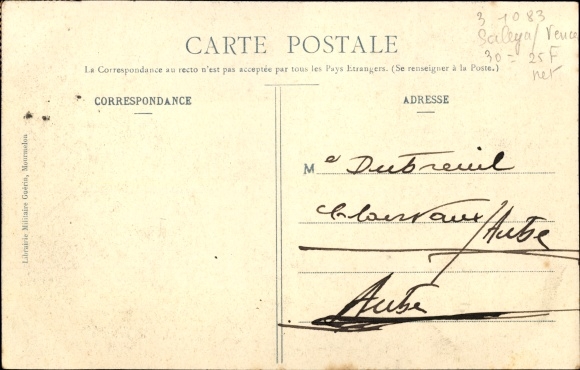 3 1083
Saleya/Vence
30 = 25F
net
CARTE POSTALE
La Correspondance au recto n'est pas acceptée par tous les Pays Etrangers. (Se renseigner à la Poste.)
CORRESPONDANCE
ADRESSE
Librairie Militaire Guérin, Mourmelon
Me Dubreuil
Clairvaux/Aube
Aube